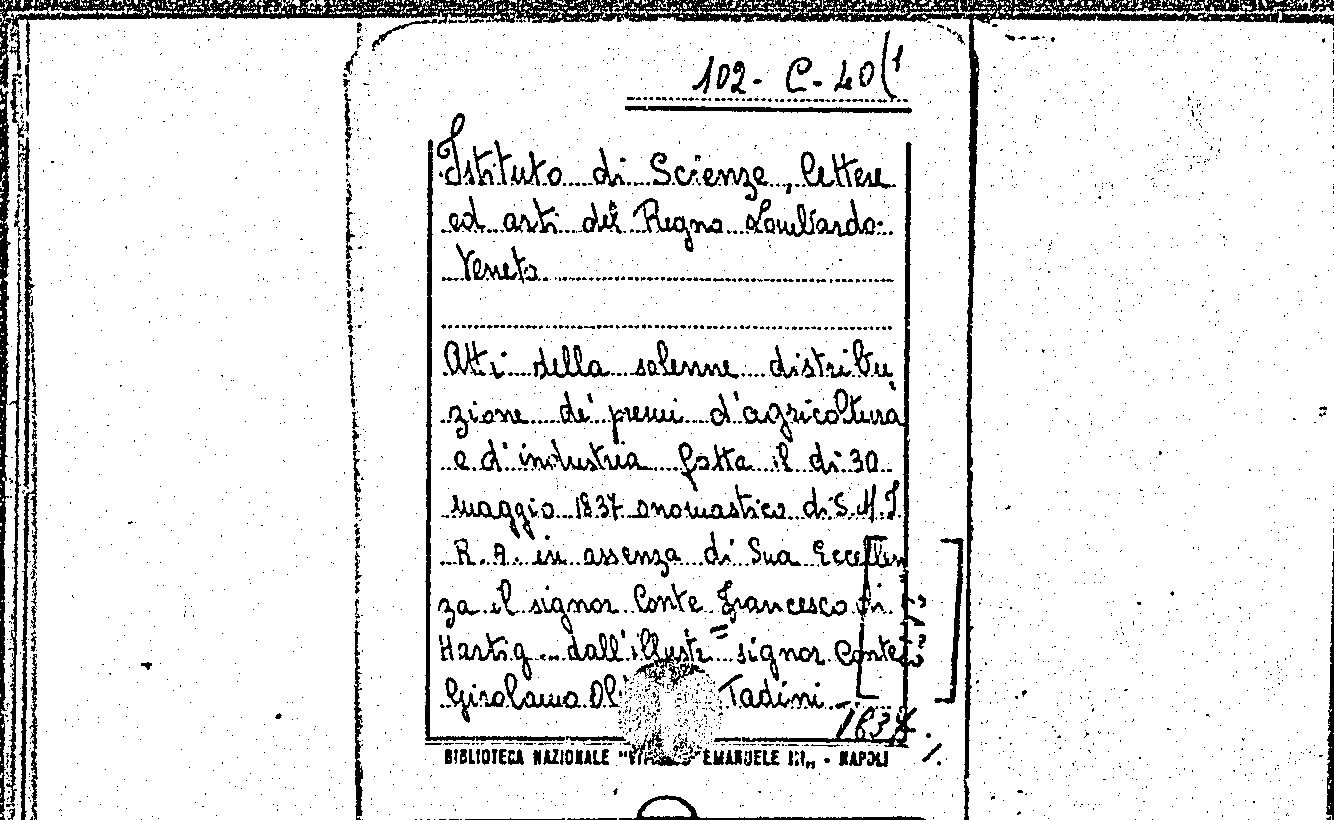 102- C- 40(1
Istituto di Scienze, lettere
ed arti del Regno Lombardo-
Veneto
Atti della solenne distribu,
zione de' premi d'agricoltura
e d'industria fatta il dì 30
maggio 1837 onomastico di S.M.I.
R.A. in assenza di Sua Eccellen
za il signor Conte Francesco di
Hartig dall'illust.= signor Conte
Girolamo Tadini
1837.
BIBLIOTECA NAZIONALE " EMANUELE III„ - NAPOLI